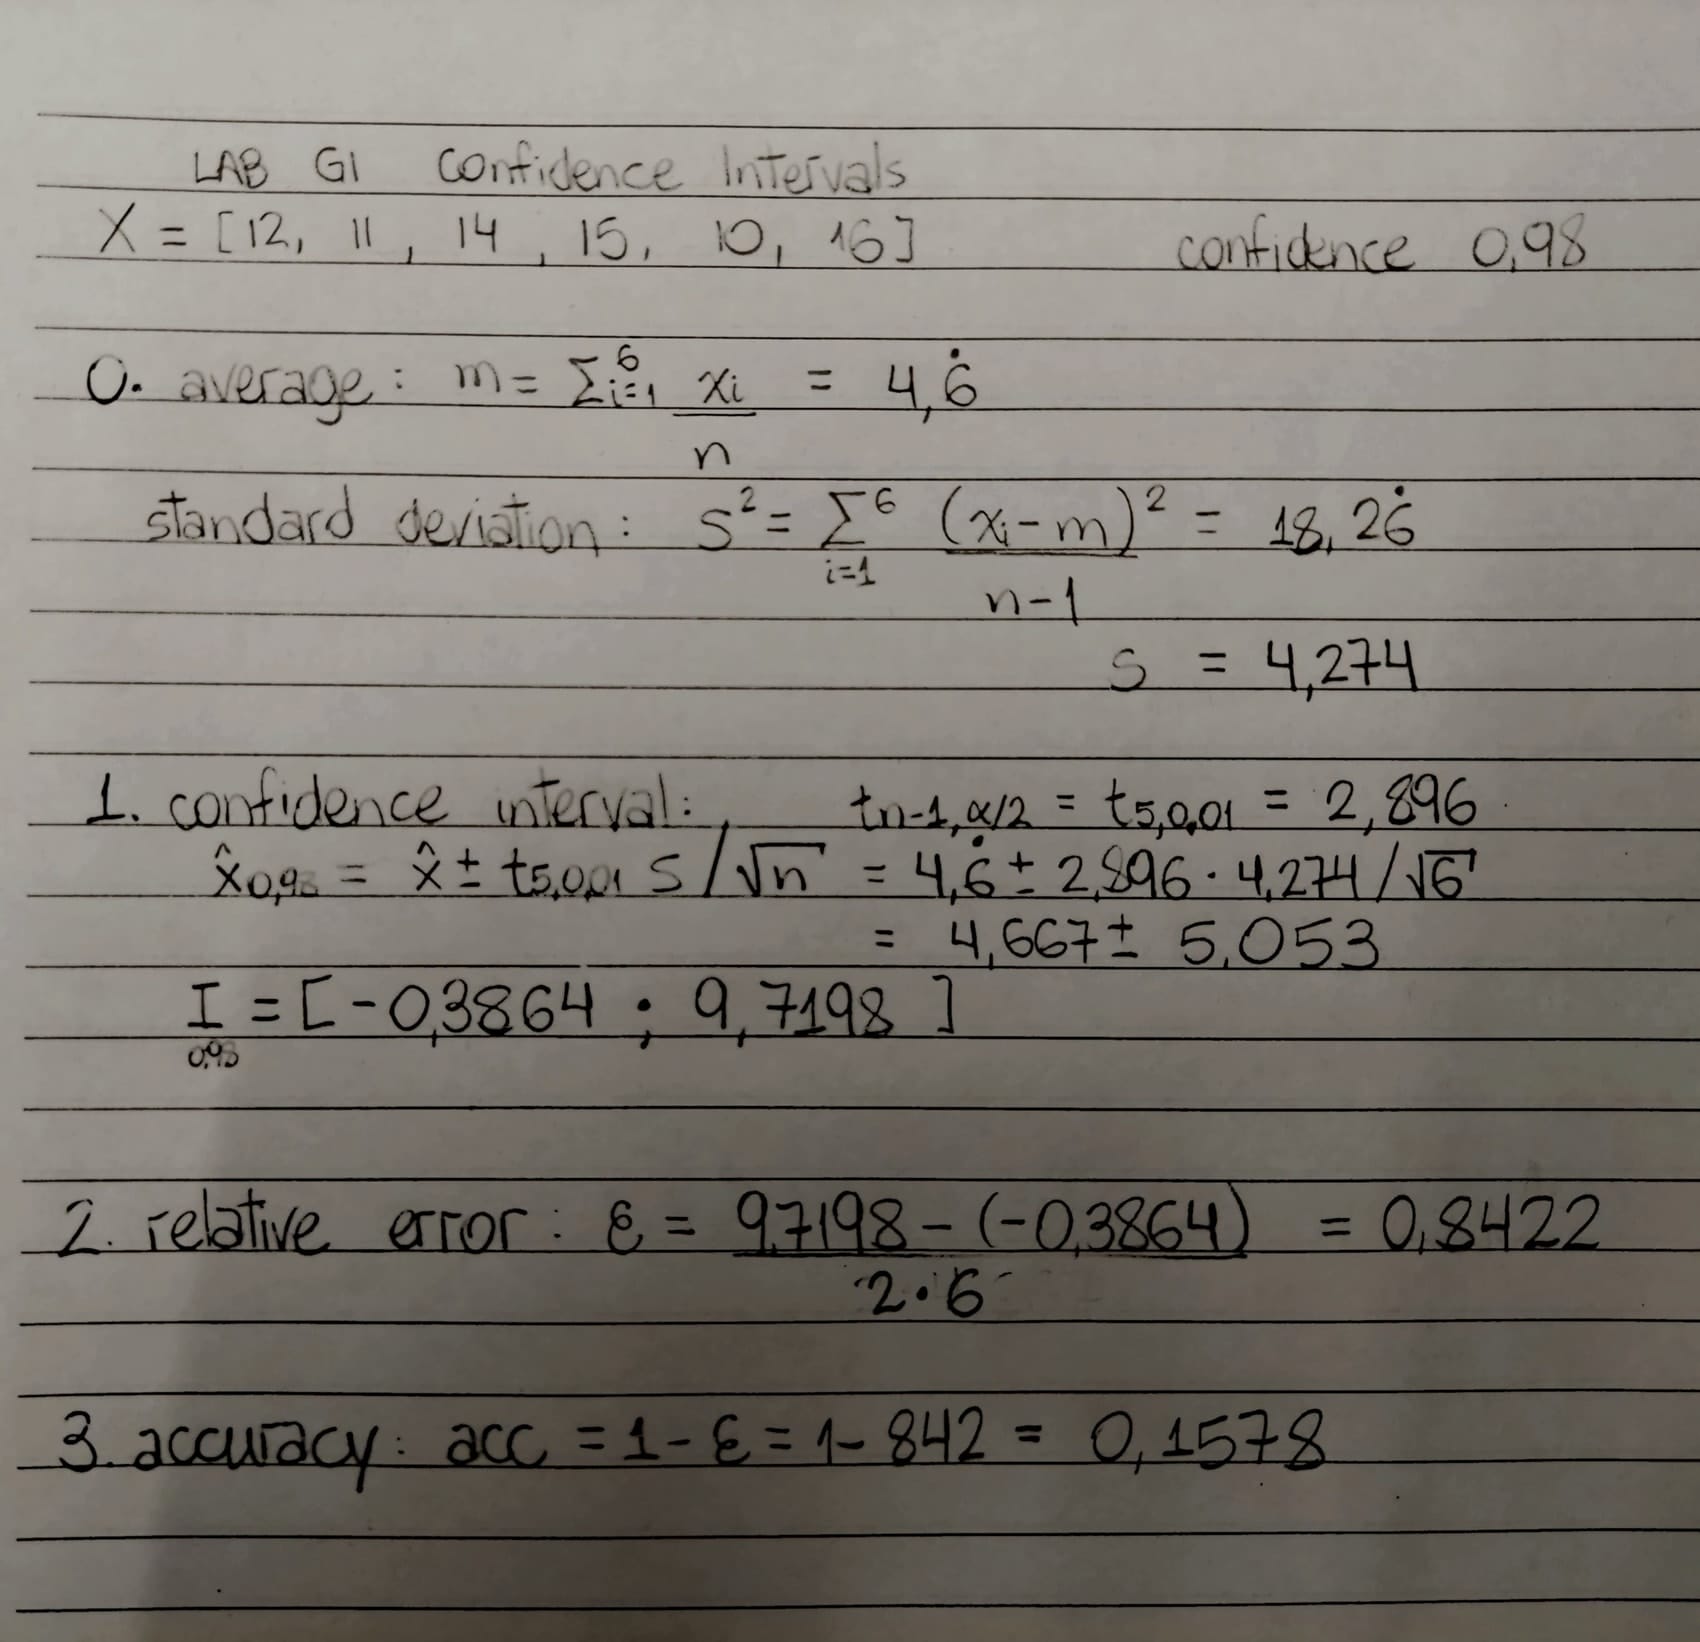 LAB G1 Confidence Intervals
X = [12, 11, 14, 15, 10, 16] confidence 0,98
0. average: m = Σ⁶ᵢ₌₁ xᵢ/n = 4,6̇
standard deviation: s² = Σ⁶ᵢ₌₁ (xᵢ - m)²/n-1 = 18,26̇
s = 4,274
1. confidence interval: tn-1,α/2 = t5,0,01 = 2,896
x̂0,98 = x̂ ± t5,0,01 s/√n = 4,6̇ ± 2,896 · 4,274/√6
= 4,667 ± 5,053
I0,98 = [-0,3864 ; 9,7198]
2. relative error: ε = 9,7198 - (-0,3864)/2·6 = 0,8422
3. accuracy: acc = 1 - ε = 1 - 842 = 0,1578